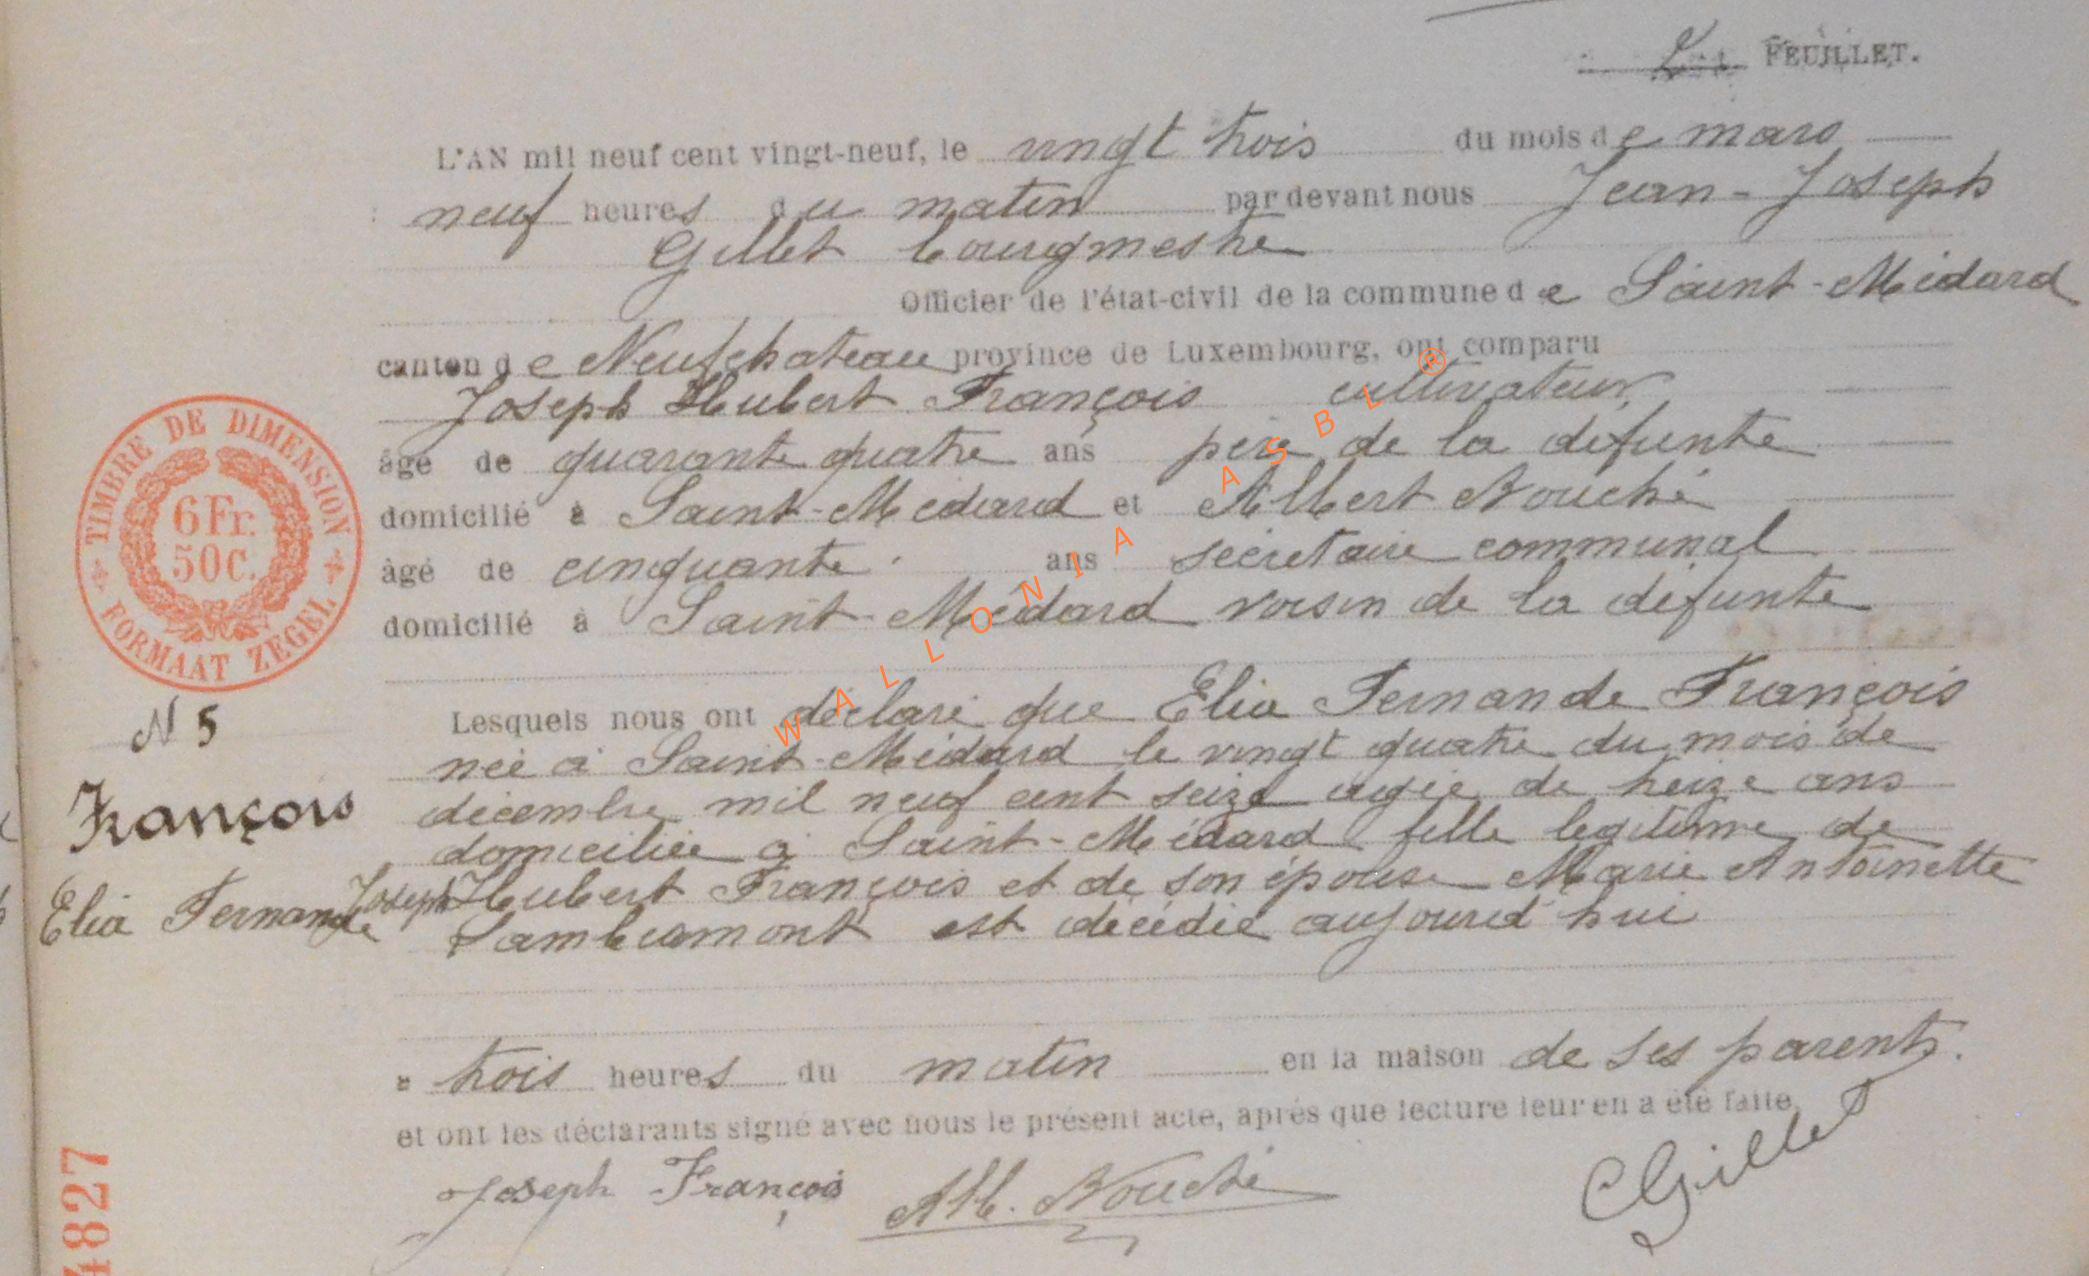 FEUILLET.
L'AN mil neuf cent vingt-neuf, le vingt trois du mois de mars
neuf heures du matin par devant nous Jean-Joseph
Gillet bourgmestre
Officier de l'état-civil de la commune de Saint-Médard
canton de Neufchateau province de Luxembourg, ont comparu
Joseph Hubert François cultivateur
âgé de quarante quatre ans père de la défunte
domicilié à Saint-Médard et Albert Bouché
âgé de cinquante ans secrétaire communal
domicilié à Saint-Médard voisin de la défunte
TIMBRE DE DIMENSION
6 Fr.
50 C.
FORMAAT ZEGEL
N 5
François
Elia Fernande
Lesquels nous ont déclaré que Elia Fernande François
née à Saint-Médard le vingt quatre du mois de
décembre mil neuf cent seize agée de treize ans
domiciliée à Saint-Médard fille légitime de
Joseph Hubert François et de son épouse Marie Antoinette
Lambiamont est décédée aujourd'hui
à trois heures du matin en la maison de ses parents.
et ont les déclarants signé avec nous le présent acte, après que lecture leur en a été faite
Joseph François Alb. Bouché Gillet
4827
WALLONIA ASBL ®